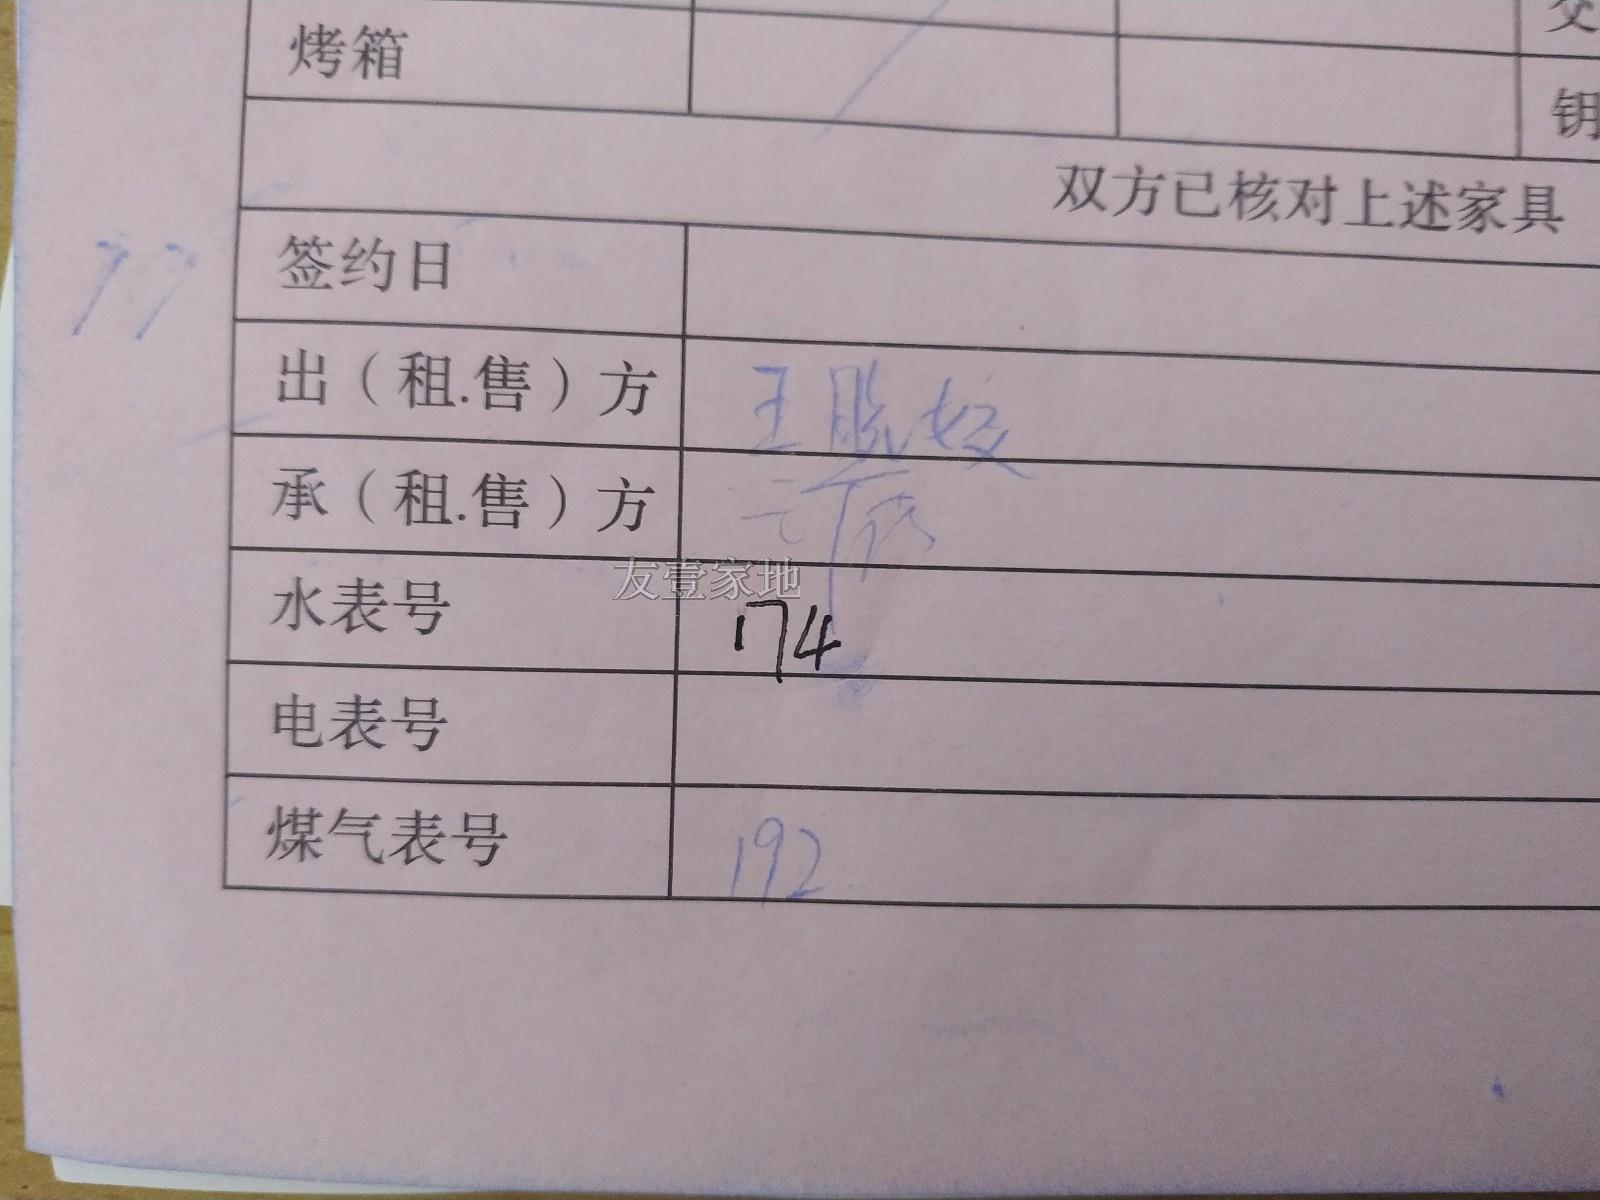 烤箱
双方已核对上述家具
签约日
77
出（租.售）方 王晓姣
承（租.售）方
友壹家地
水表号 174
电表号
煤气表号 192